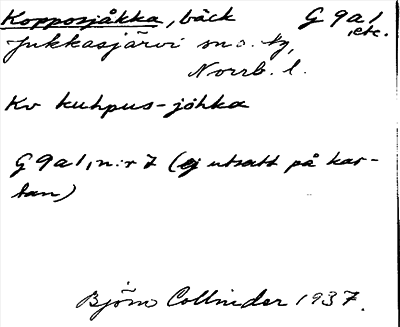 Kopposjåkka, bäck G 9a1, etc.
Jukkasjärvi sn o. tg,
Norrb. l.
Kv kuhpus-jóhka
G 9a1, n:r 7 (ej utsatt på kar-
tan)
Björn Collinder 1937.